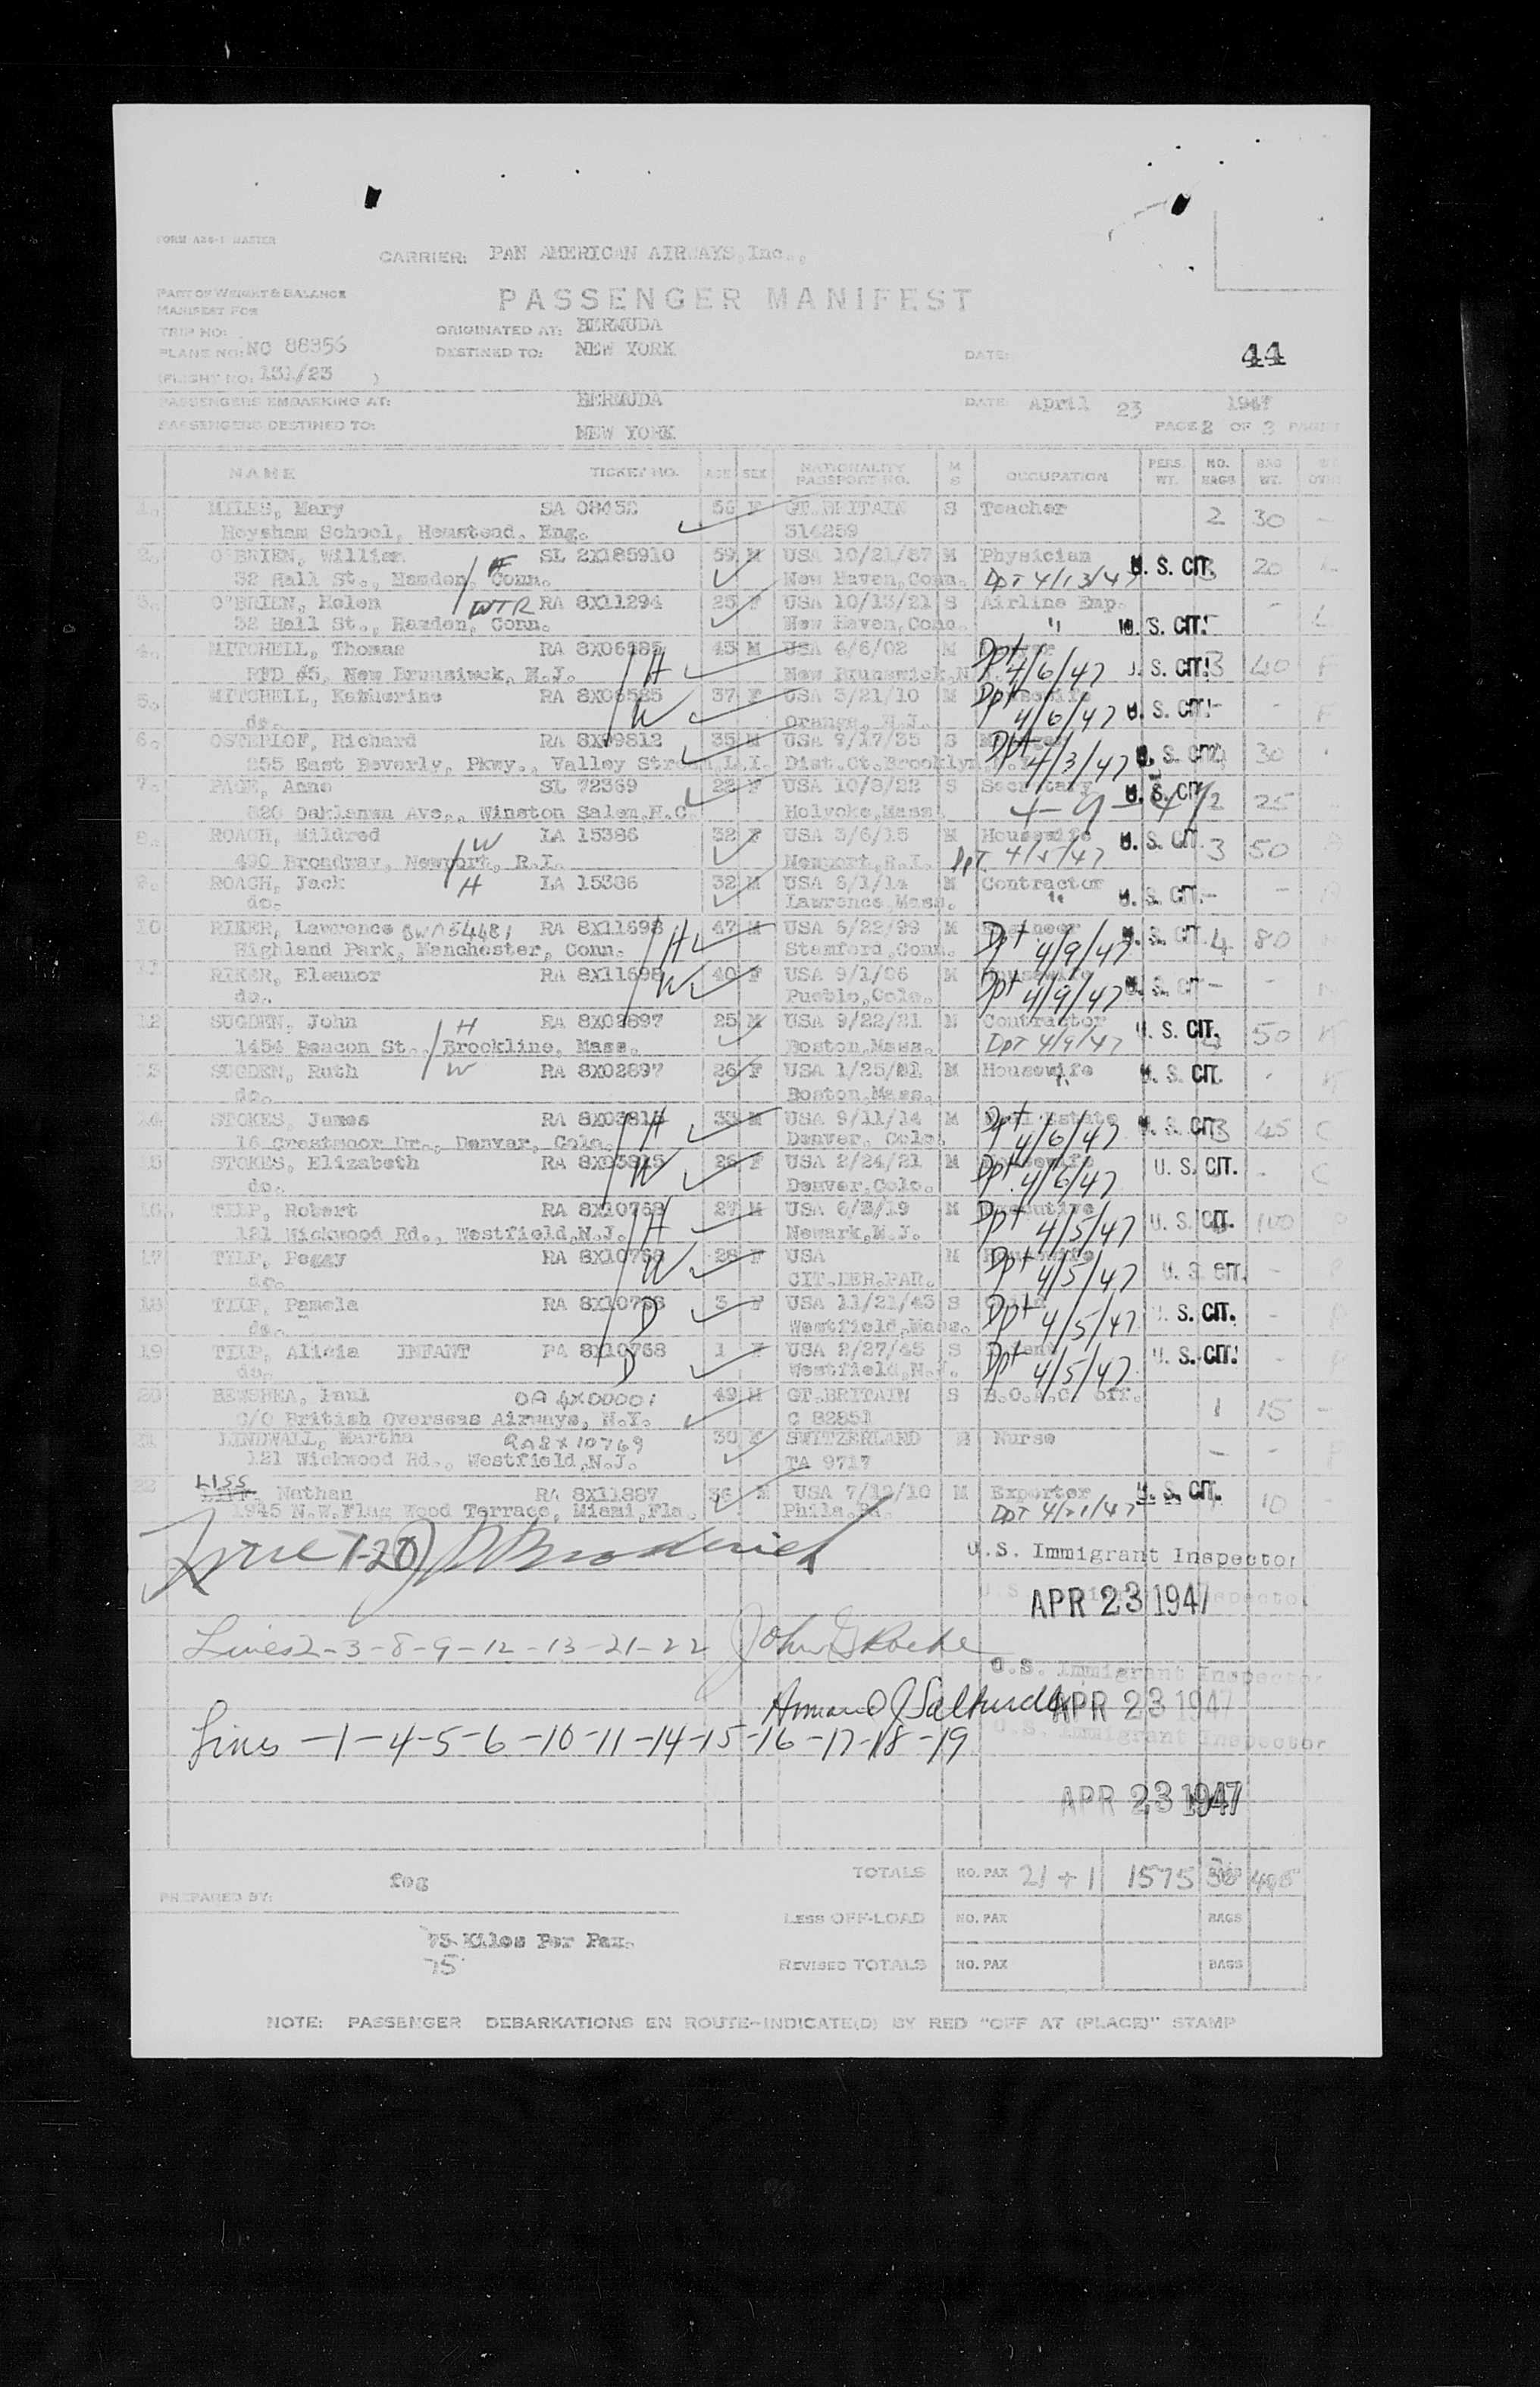 FORM A26-1 MASTER
CARRIER: PAN AMERICAN AIRWAYS, Inc.,
PART OF WEIGHT & BALANCE
MANIFEST FOR
PASSENGER MANIFEST
TRIP NO:
ORIGINATED AT: BERMUDA
PLANE NO: NC 88856
DESTINED TO: NEW YORK
DATE:
44
(FLIGHT NO: 131/23 )
PASSENGERS EMBARKING AT: BERMUDA
DATE: April 23 1947
PASSENGERS DESTINED TO: NEW YORK
PAGE 2 OF 3 PAGES
NAME TICKET NO. AGE SEX NATIONALITY PASSPORT NO. M S OCCUPATION PERS. WT. NO. BAGS BAG WT.
1. MILES, Mary SA 08452 56 F GT. BRITAIN S Teacher 2 30 -
Heysham School, Hemstead, Eng. 314259
2. O'BRIEN, William F SL 2X185910 59 M USA 10/21/87 M Physician U. S. CIT. 20
32 Hall St., Hamden, Conn. New Haven, Conn. Dpt 4/13/47
3. O'BRIEN, Helen DTR RA 8X11294 25 F USA 10/13/21 S Airline Emp. - L
32 Hall St., Hamden, Conn. New Haven, Conn. " U. S. CIT.
4. MITCHELL, Thomas RA 8X06585 45 M USA 4/6/02 M Dpt
RFD #5, New Brunsiwck, N.J. H New Brunswick, N.J. 4/6/47 U. S. CIT. 3 40 F
5. MITCHELL, Katherine RA 8X06585 37 F USA 3/21/10 M Dpt Housewife
do. W Orange, N.J. 4/6/47 U. S. CIT. - - F
6. OSTERLOF, Richard RA 8X09812 35 M USA 9/17/35 S Dpt
255 East Beverly, Pkwy., Valley Stream, L.I. Dist. Ct. Brooklyn, 4/3/47 U. S. CIT. 30
7. PAGE, Anna SL 72369 22 F USA 10/8/22 S Secretary U. S. CIT.
820 Oaklawn Ave., Winston Salem, N.C. Holyoke, Mass. 2 25
8. ROACH, Mildred W LA 15386 32 F USA 3/6/15 M Housewife U. S. CIT. 3 50
490 Broadway, Newport, R.I. Newport, R.I. Dpt 4/5/47
9. ROACH, Jack H LA 15386 32 M USA 6/1/14 M Contractor
do. Lawrence, Mass. " U. S. CIT. - -
10 RIKER, Lawrence RA 8X11698 47 M USA 6/22/99 M Engineer U. S. CIT. 4 80
Highland Park, Manchester, Conn. H Stamford, Conn. Dpt 4/9/47
11 RIKER, Eleanor RA 8X11698 40 F USA 9/1/06 M Housewife
do. W Pueblo, Colo. Dpt 4/9/47 U. S. CIT - -
12 SUGDEN, John H RA 8X02897 25 M USA 9/22/21 M Contractor U. S. CIT. 50
1454 Beacon St., Brookline, Mass. Boston, Mass. Dpt 4/9/47
13 SUGDEN, Ruth W RA 8X02897 26 F USA 1/25/21 M Housewife U. S. CIT. -
do. Boston, Mass. "
14 STOKES, James RA 8X03815 33 M USA 9/11/14 M Real Estate U. S. CIT. 3 45 C
16 Crestmoor Dr., Denver, Colo. H Denver, Colo. Dpt 4/6/47
15 STOKES, Elizabeth RA 8X03815 26 F USA 2/24/21 M Housewife U. S. CIT. - C
do. W Denver, Colo. Dpt 4/6/47
16. TILP, Robert RA 8X10768 27 M USA 6/2/19 M Executive U. S. CIT. 100
121 Wickwood Rd., Westfield, N.J. H Newark, N.J. Dpt 4/5/47
17 TILP, Peggy RA 8X10768 28 F USA M Housewife
do. W CIT. HER. PAR. Dpt 4/5/47 U. S CIT. -
18 TILP, Pamela RA 8X10768 3 F USA 11/21/43 S
do. D Westfield, Mass. Dpt 4/5/47 U. S. CIT. -
19 TILP, Alicia INFANT RA 8X10768 1 F USA 2/27/46 S Infant U. S. CIT. -
do. D Westfield, N.J. Dpt 4/5/47
20 BEWSHEA, Paul OA 4X00001 49 M GT. BRITAIN S B.O.A.C. off.
C/O British Overseas Airways, N.Y. C 82851 1 15 -
21 LINDWALL, Martha RA8X10769 30 F SWITZERLAND M Nurse
121 Wickwood Rd., Westfield, N.J. TA 9717 - - F
22 LISS, Nathan RA 8X11887 36 M USA 7/12/10 M Exporter U. S. CIT.
1945 N.W. Flag Wood Terrace, Miami, Fla. Phila. Pa. Dpt 4/21/47 10
Line 7-20 Broderick
U.S. Immigrant Inspector
APR 23 1947
Lines 2-3-8-9-12-13-21-22 John G Roche
U.S. Immigrant Inspector
APR 23 1947
Lines -1-4-5-6-10-11-14-15-16-17-18-19
U.S. Immigrant Inspector
APR 23 1947
TOTALS NO. PAX 21 + 1 1575 BAGS
PREPARED BY: feg
LESS OFF-LOAD NO. PAX BAGS
75 Kilos Per Pax.
75
REVISED TOTALS NO. PAX BAGS
NOTE: PASSENGER DEBARKATIONS EN ROUTE-INDICATE(D) BY RED "OFF AT (PLACE)" STAMP